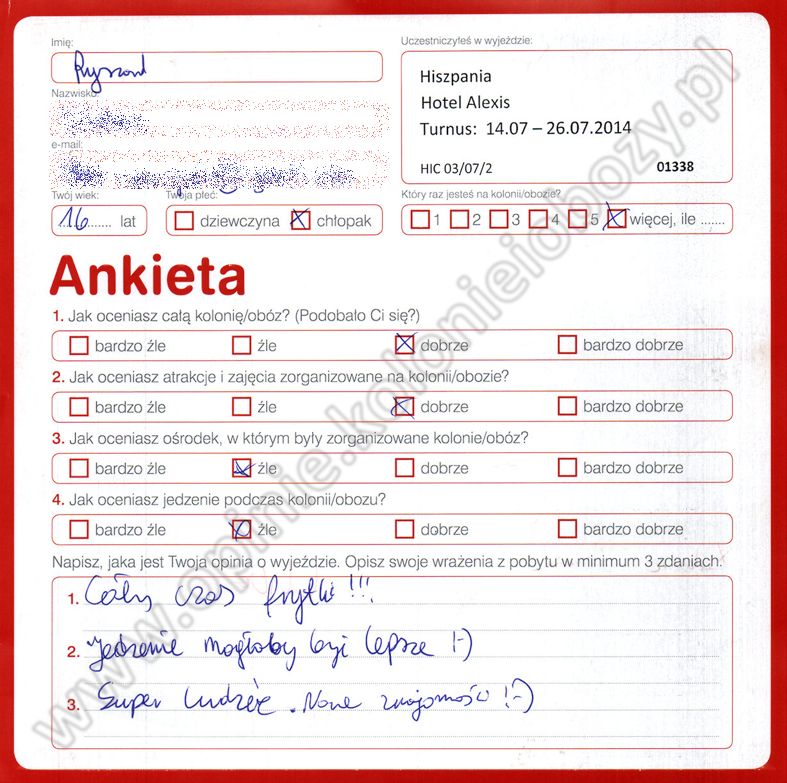 Imię:
Ryszard
Nazwisko:
e-mail:
Twój wiek:
16 lat
Twoja płeć:
dziewczyna chłopak
Uczestniczyłeś w wyjeździe:
Hiszpania
Hotel Alexis
Turnus: 14.07 – 26.07.2014
HIC 03/07/2 01338
Który raz jesteś na kolonii/obozie?
1 2 3 4 5 więcej, ile .......
Ankieta
1. Jak oceniasz całą kolonię/obóz? (Podobało Ci się?)
bardzo źle źle dobrze bardzo dobrze
2. Jak oceniasz atrakcje i zajęcia zorganizowane na kolonii/obozie?
bardzo źle źle dobrze bardzo dobrze
3. Jak oceniasz ośrodek, w którym były zorganizowane kolonie/obóz?
bardzo źle źle dobrze bardzo dobrze
4. Jak oceniasz jedzenie podczas kolonii/obozu?
bardzo źle źle dobrze bardzo dobrze
Napisz, jaka jest Twoja opinia o wyjeździe. Opisz swoje wrażenia z pobytu w minimum 3 zdaniach.
1. Cały czas frytki!!!
2. Jedzenie mogłoby być lepsze :-)
3. Super ludzie. Nowe znajomości :-)
www.opinie.kolonieiobozy.pl